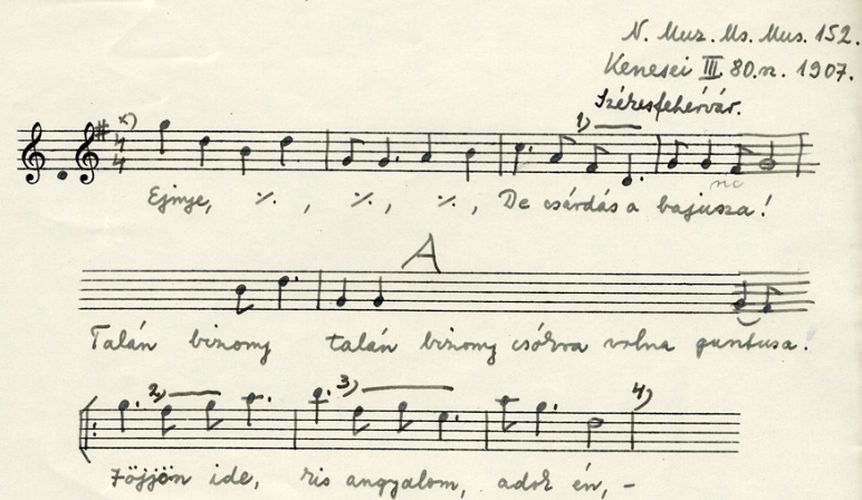 N. Muz. Ms. Mus. 152.
Kenesei III. 80.n. 1907.
Székesfehérvár.
x) 4 4 1)
Ejnye, ·/. , ·/. , ·/. , De csárdás a bajusza!
A
Talán bizony talán bizony csókra volna gusztusa.
2) 3) 4)
Jőjjön ide, kis angyalom, adok én, -